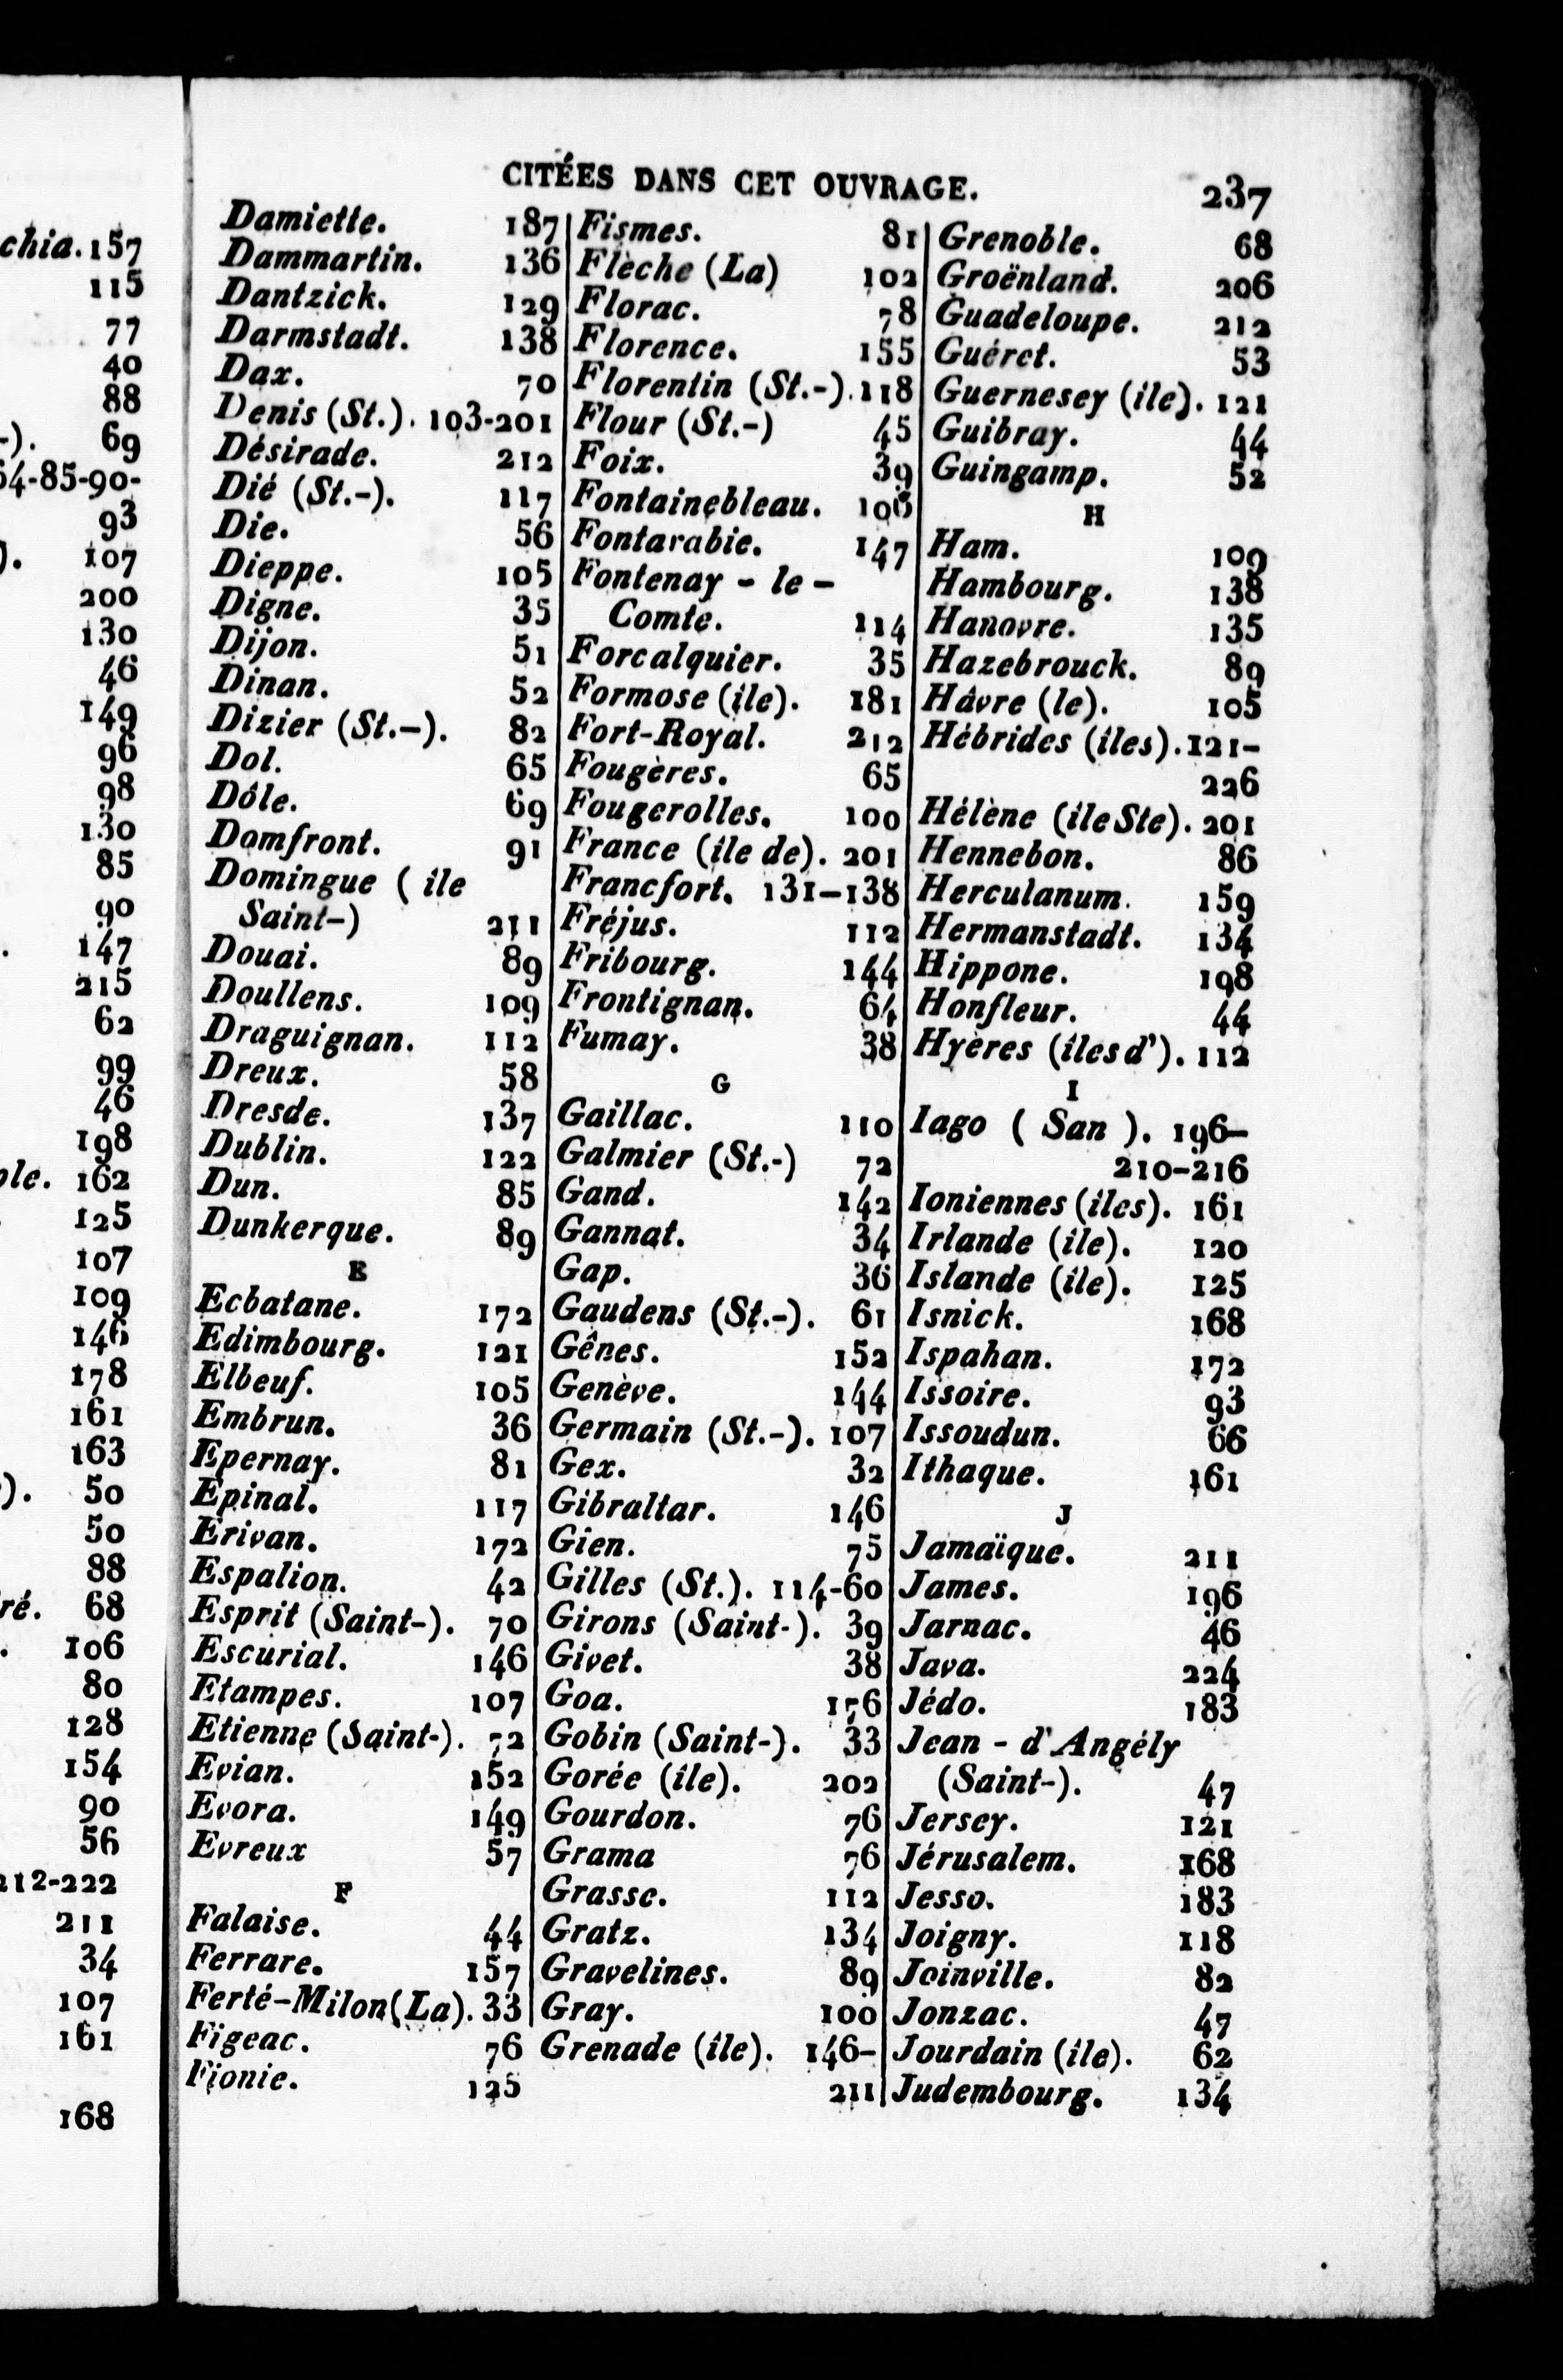 chia. 157
115
77
40
88
-). 69
54-85-90-
93
). 107
200
130
46
149
96
98
130
85
90
. 147
215
62
99
46
198
ple. 162
125
107
109
146
178
161
163
). 50
50
88
ré. 68
. 106
80
128
154
90
56
212-222
211
34
107
161
168
CITÉES DANS CET OUVRAGE. 237
Damiette. 187
Dammartin. 136
Dantzick. 129
Darmstadt. 138
Dax. 70
Denis (St.). 103-201
Désirade. 212
Dié (St.-). 117
Die. 56
Dieppe. 105
Digne. 35
Dijon. 51
Dinan. 52
Dizier (St.-). 82
Dol. 65
Dôle. 69
Domfront. 91
Domingue ( île
Saint-) 211
Douai. 89
Doullens. 109
Draguignan. 112
Dreux. 58
Dresde. 137
Dublin. 122
Dun. 85
Dunkerque. 89
E
Ecbatane. 172
Edimbourg. 121
Elbeuf. 105
Embrun. 36
Epernay. 81
Epinal. 117
Erivan. 172
Espalion. 42
Esprit (Saint-). 70
Escurial. 146
Etampes. 107
Etienne (Saint-). 72
Evian. 152
Evora. 149
Evreux 57
F
Falaise. 44
Ferrare. 157
Ferté-Milon (La). 33
Figeac. 76
Fionie. 125
Fismes. 81
Flèche (La) 102
Florac. 78
Florence. 155
Florentin (St.-). 118
Flour (St.-) 45
Foix. 39
Fontainebleau. 106
Fontarabie. 147
Fontenay - le -
Comte. 114
Forcalquier. 35
Formose (île). 181
Fort-Royal. 212
Fougères. 65
Fougerolles. 100
France (île de). 201
Francfort. 131-138
Fréjus. 112
Fribourg. 144
Frontignan. 64
Fumay. 38
G
Gaillac. 110
Galmier (St.-) 72
Gand. 142
Gannat. 34
Gap. 36
Gaudens (St.-). 61
Gênes. 152
Genève. 144
Germain (St.-). 107
Gex. 32
Gibraltar. 146
Gien. 75
Gilles (St.). 114-60
Girons (Saint-). 39
Givet. 38
Goa. 176
Gobin (Saint-). 33
Gorée (île). 202
Gourdon. 76
Grama 76
Grasse. 112
Gratz. 134
Gravelines. 89
Gray. 100
Grenade (île). 146-
211
Grenoble. 68
Groënland. 206
Guadeloupe. 212
Guéret. 53
Guernesey (île). 121
Guibray. 44
Guingamp. 52
H
Ham. 109
Hambourg. 138
Hanovre. 135
Hazebrouck. 89
Hâvre (le). 105
Hébrides (îles). 121-
226
Hélène (île Ste). 201
Hennebon. 86
Herculanum. 159
Hermanstadt. 134
Hippone. 198
Honfleur. 44
Hyères (îles d'). 112
I
Iago ( San ). 196-
210-216
Ioniennes (îles). 161
Irlande (île). 120
Islande (île). 125
Isnick. 168
Ispahan. 172
Issoire. 93
Issoudun. 66
Ithaque. 161
J
Jamaïque. 211
James. 196
Jarnac. 46
Java. 224
Jédo. 183
Jean - d'Angély
(Saint-). 47
Jersey. 121
Jérusalem. 168
Jesso. 183
Joigny. 118
Joinville. 82
Jonzac. 47
Jourdain (île). 62
Judembourg. 134